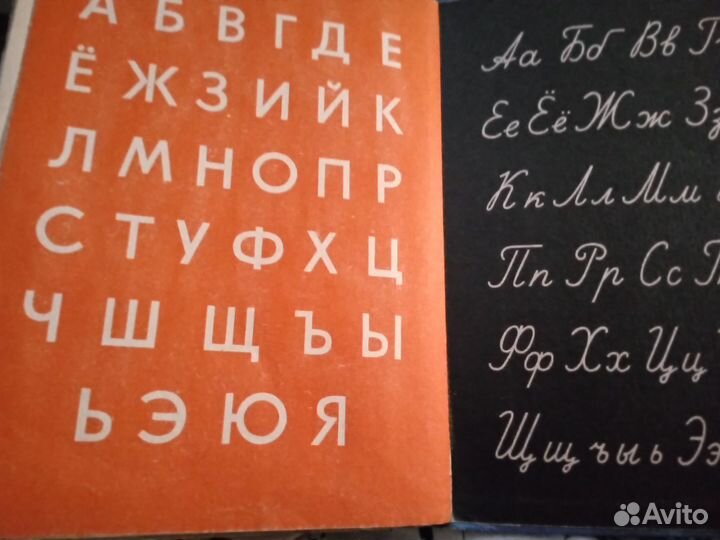 А Б В Г Д Е
Ё Ж З И Й К
Л М Н О П Р
С Т У Ф Х Ц
Ч Ш Щ Ъ Ы
Ь Э Ю Я
Аа Бб Вв
Ее Ёё Жж Зз
Кк Лл Мм
Пп Рр Сс
Фф Хх Цц
Щщ ъ ы ь Ээ
Avito